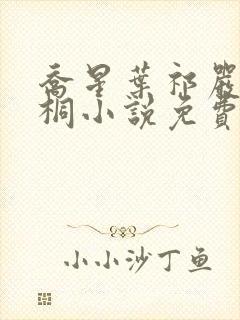 喬星葉祁嚴
桐小說免費
小小沙丁鱼